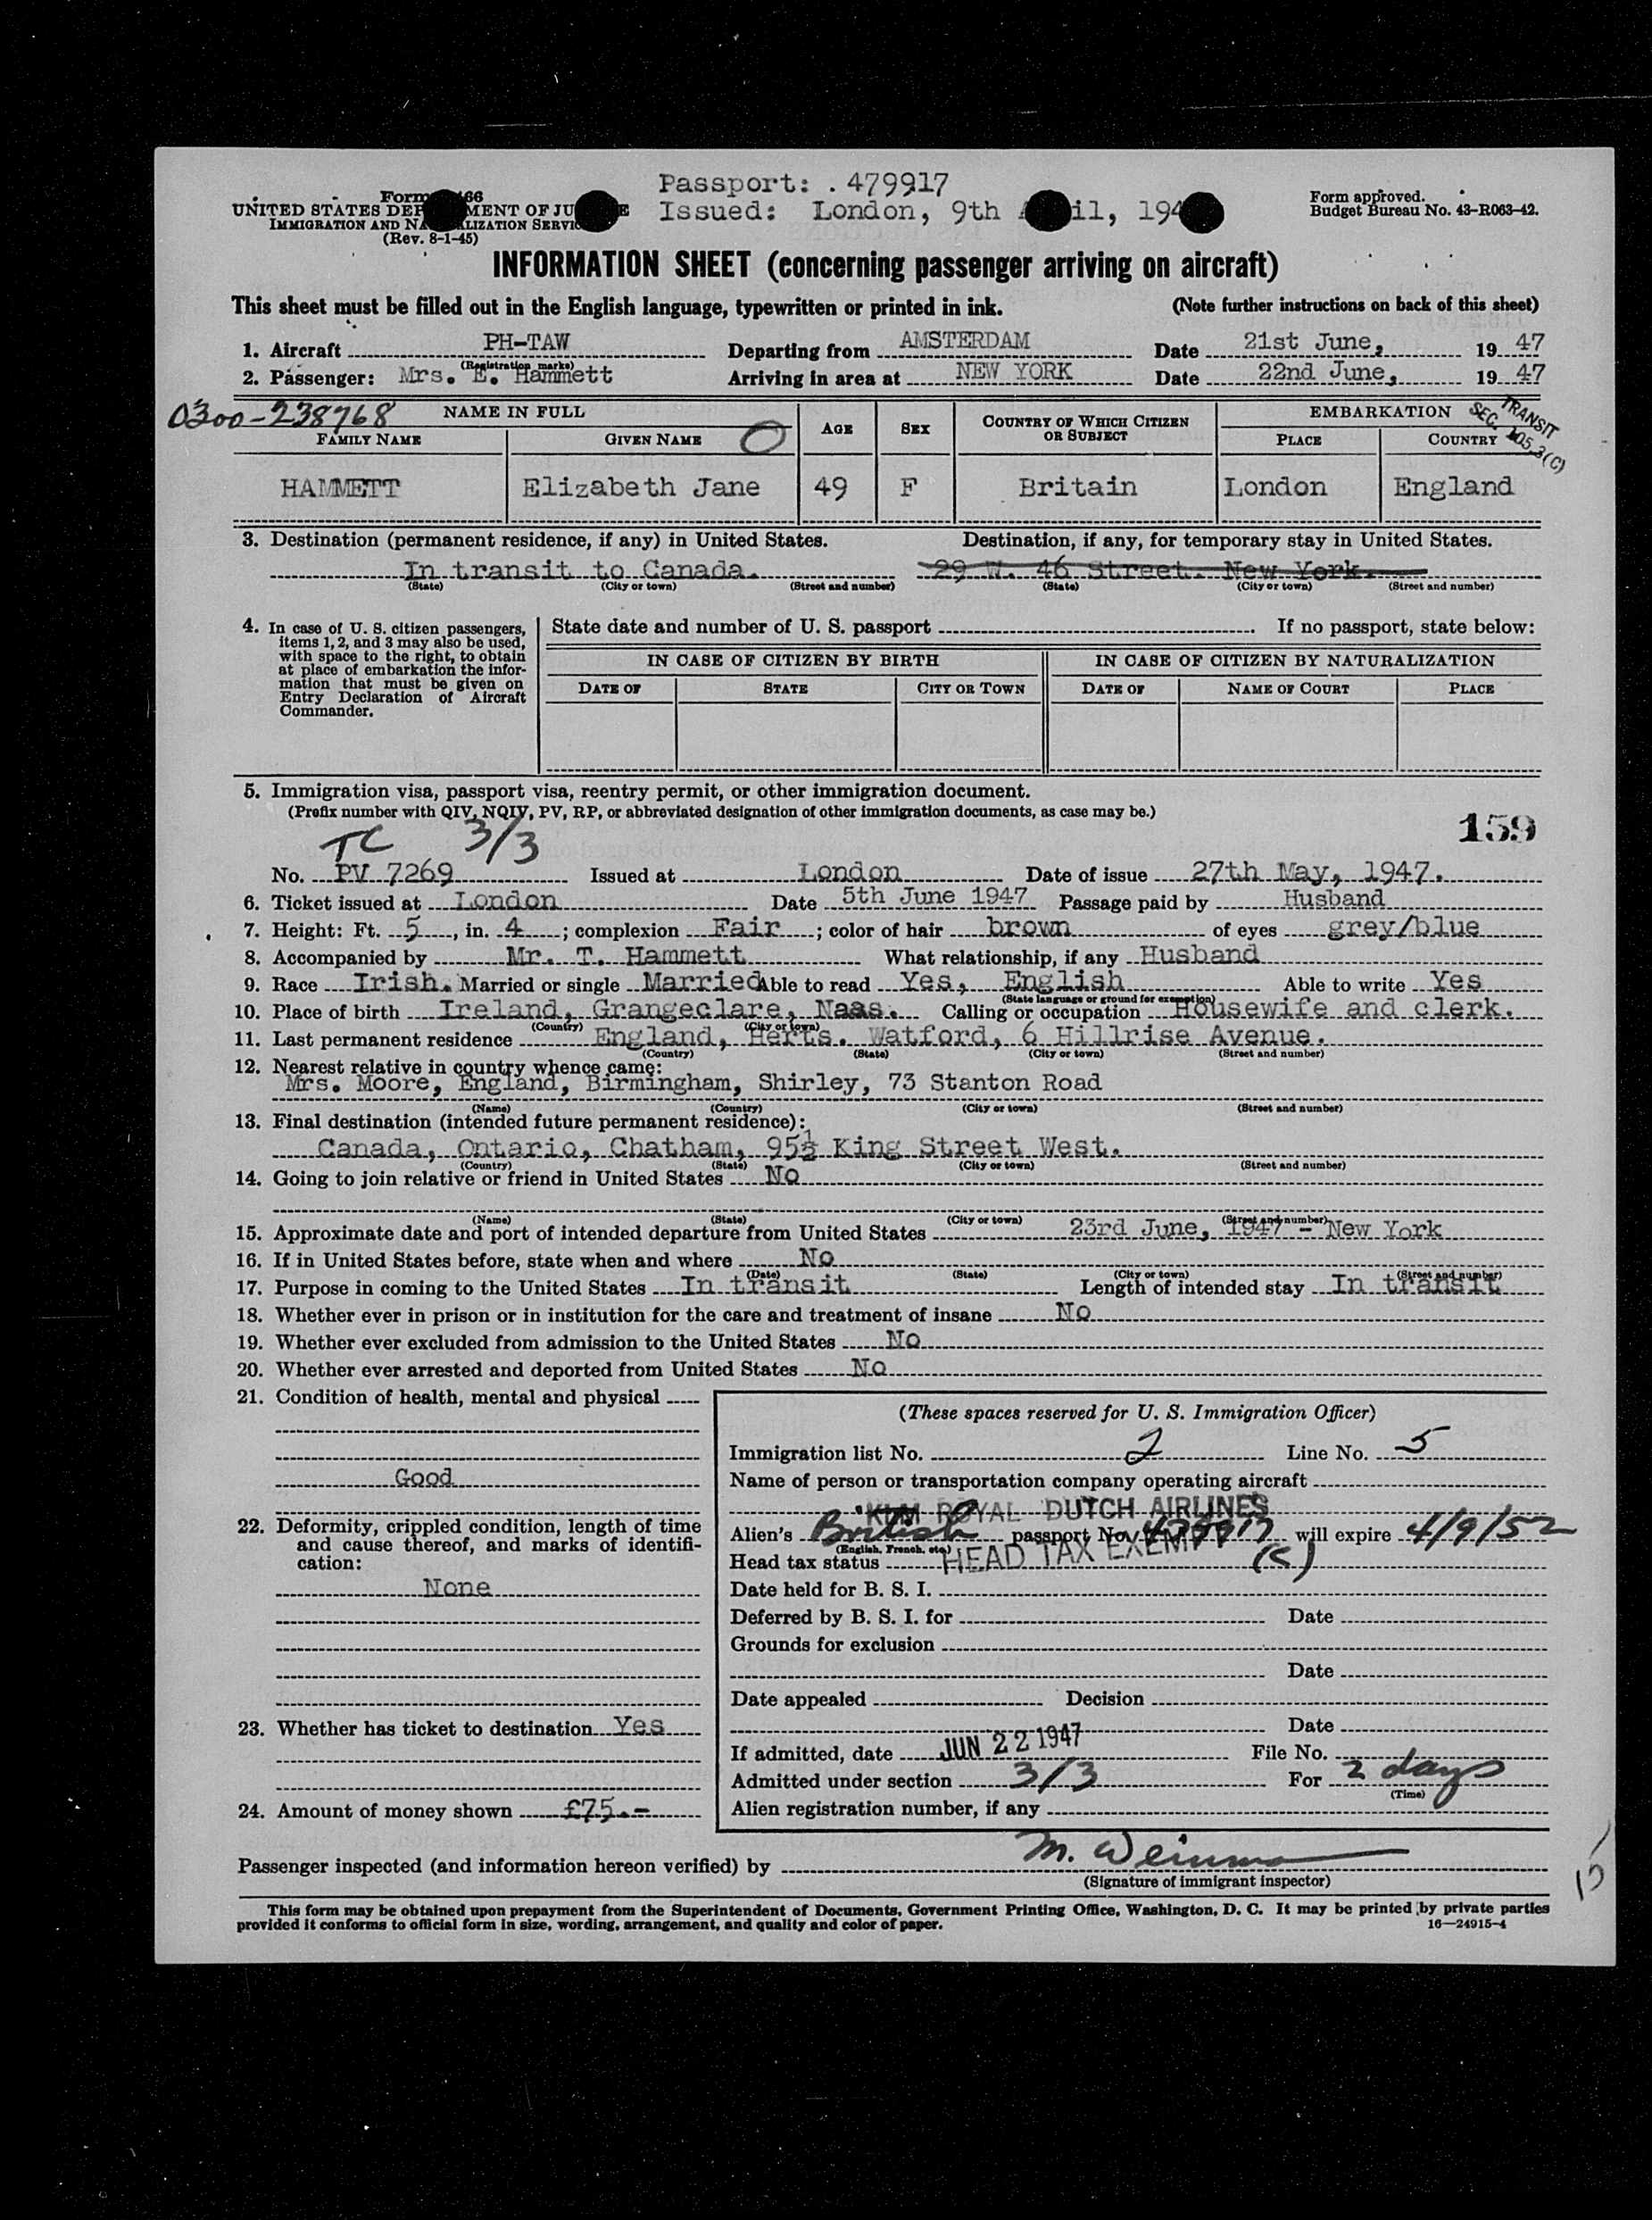 Passport: . 479917
Form 66
UNITED STATES DEP MENT OF JU E
Issued: London, 9th il, 194
Form approved.
Budget Bureau No. 43-R063-42.
IMMIGRATION AND NA LIZATION SERVIC
(Rev. 8-1-45)
INFORMATION SHEET (concerning passenger arriving on aircraft)
This sheet must be filled out in the English language, typewritten or printed in ink. (Note further instructions on back of this sheet)
1. Aircraft PH-TAW Departing from AMSTERDAM Date 21st June, 19 47
(Registration marks)
2. Passenger: Mrs. E. Hammett Arriving in area at NEW YORK Date 22nd June, 19 47
0300-238768 NAME IN FULL AGE SEX COUNTRY OF WHICH CITIZEN OR SUBJECT EMBARKATION
TRANSIT
SEC. 105.3(C)
FAMILY NAME GIVEN NAME O PLACE COUNTRY
HAMMETT Elizabeth Jane 49 F Britain London England
3. Destination (permanent residence, if any) in United States. Destination, if any, for temporary stay in United States.
In transit to Canada. 29 W. 46 Street. New York.
(State) (City or town) (Street and number) (State) (City or town) (Street and number)
4. In case of U. S. citizen passengers, items 1, 2, and 3 may also be used, with space to the right, to obtain at place of embarkation the information that must be given on Entry Declaration of Aircraft Commander.
State date and number of U. S. passport If no passport, state below:
IN CASE OF CITIZEN BY BIRTH IN CASE OF CITIZEN BY NATURALIZATION
DATE OF STATE CITY OR TOWN DATE OF NAME OF COURT PLACE
5. Immigration visa, passport visa, reentry permit, or other immigration document.
(Prefix number with QIV, NQIV, PV, RP, or abbreviated designation of other immigration documents, as case may be.)
TC 3/3 159
No. PV 7269 Issued at London Date of issue 27th May, 1947.
6. Ticket issued at London Date 5th June 1947 Passage paid by Husband
7. Height: Ft. 5, in. 4; complexion Fair; color of hair brown of eyes grey/blue
8. Accompanied by Mr. T. Hammett What relationship, if any Husband
9. Race Irish. Married or single Married Able to read Yes, English Able to write Yes
(State language or ground for exemption)
10. Place of birth Ireland, Grangeclare, Naas. Calling or occupation Housewife and clerk.
(Country) (City or town)
11. Last permanent residence England, Herts. Watford, 6 Hillrise Avenue.
(Country) (State) (City or town) (Street and number)
12. Nearest relative in country whence came:
Mrs. Moore, England, Birmingham, Shirley, 73 Stanton Road
(Name) (Country) (City or town) (Street and number)
13. Final destination (intended future permanent residence):
Canada, Ontario, Chatham, 95½ King Street West.
(Country) (State) (City or town) (Street and number)
14. Going to join relative or friend in United States No
(Name) (State) (City or town) (Street and number)
15. Approximate date and port of intended departure from United States 23rd June, 1947 - New York
16. If in United States before, state when and where No
(Date) (State) (City or town) (Street and number)
17. Purpose in coming to the United States In transit Length of intended stay In transit
18. Whether ever in prison or in institution for the care and treatment of insane No
19. Whether ever excluded from admission to the United States No
20. Whether ever arrested and deported from United States No
21. Condition of health, mental and physical
Good
22. Deformity, crippled condition, length of time and cause thereof, and marks of identification:
None
23. Whether has ticket to destination Yes
24. Amount of money shown £75.-
(These spaces reserved for U. S. Immigration Officer)
Immigration list No. 2 Line No. 5
Name of person or transportation company operating aircraft
KLM ROYAL DUTCH AIRLINES
Alien's British passport No. 479917 will expire 4/9/52
(English, French, etc.)
Head tax status HEAD TAX EXEMPT
Date held for B. S. I.
Deferred by B. S. I. for Date
Grounds for exclusion
Date
Date appealed Decision
Date
If admitted, date JUN 22 1947 File No.
Admitted under section 3/3 For 2 days
(Time)
Alien registration number, if any
Passenger inspected (and information hereon verified) by
(Signature of immigrant inspector)
15
This form may be obtained upon prepayment from the Superintendent of Documents, Government Printing Office, Washington, D. C. It may be printed by private parties
provided it conforms to official form in size, wording, arrangement, and quality and color of paper. 16—24915-4